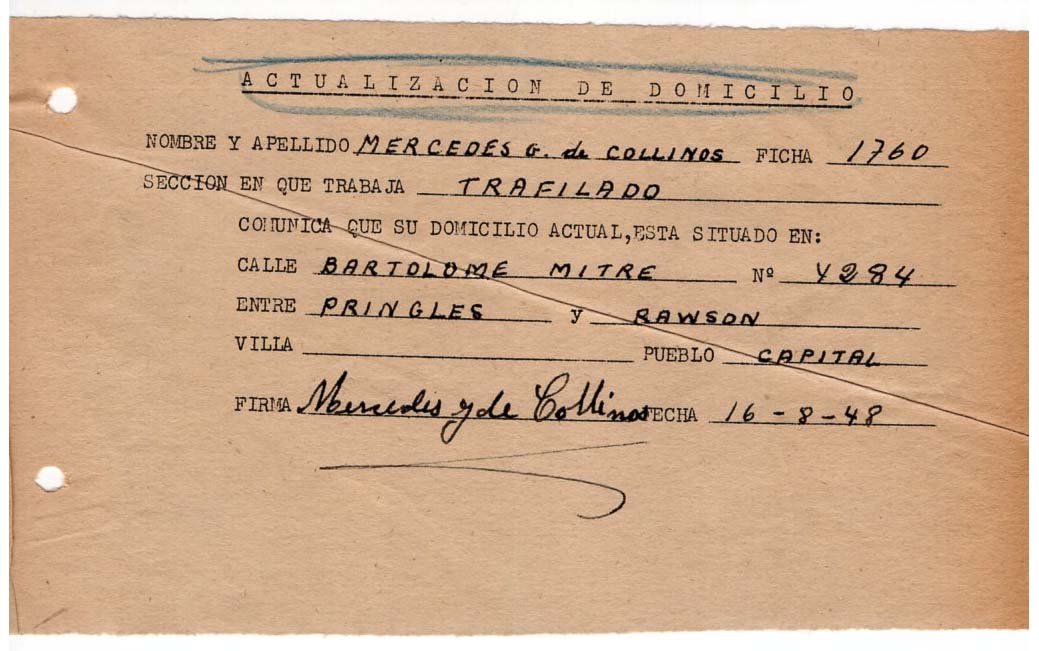 ACTUALIZACION DE DOMICILIO
NOMBRE Y APELLIDO MERCEDES G. de COLLINOS FICHA 1760
SECCION EN QUE TRABAJA TRAFILADO
COMUNICA QUE SU DOMICILIO ACTUAL, ESTA SITUADO EN:
CALLE BARTOLOME MITRE Nº 4284
ENTRE PRINGLES y RAWSON
VILLA PUEBLO CAPITAL
FIRMA Mercedes y de Collinos FECHA 16-8-48